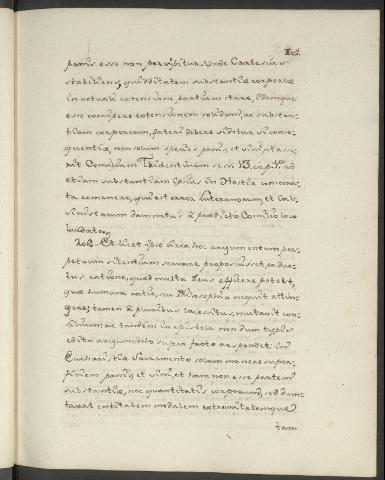 panis esse non percipitur. Unde Cartesius
stabiliens, quidditatem substantiæ corporeæ
in actuali extensione partium stare, idemque
esse concipere extensionem solidum, ac substan-
tiam corpoream, fateri debere videtur ex conse-
quentia, non solum species panis, et vini, ut asse-
rit Concilium Tridentinum sess. 13. cap. 4. sed
etiam substantiam ipsius in Hostia consecra-
ta remanere, qui est error Luteranorum, et Cal-
vinistarum damnatus à prædicto Concilio loco
laudato.
Rob. Et licet ipse circa hoc argumentum per-
petuum silentium servare proposuisset, eâ duc-
tus ratione, quod multa Deus efficere potest,
quæ humana ratio, seu Philosophia nequit attin-
gere; tamen à pluribus lacessitus, mutavit con-
silium: ac tandem in epistola nondum typis
edita argumento supra facto respondet; in
Eucharistiæ Sacramento solam manere super-
ficiem panis, et vini, et hanc non esse partem
substantiæ, nec quantitatis corporum, sed dum-
taxat entitatem modalem extremitatemque
tam